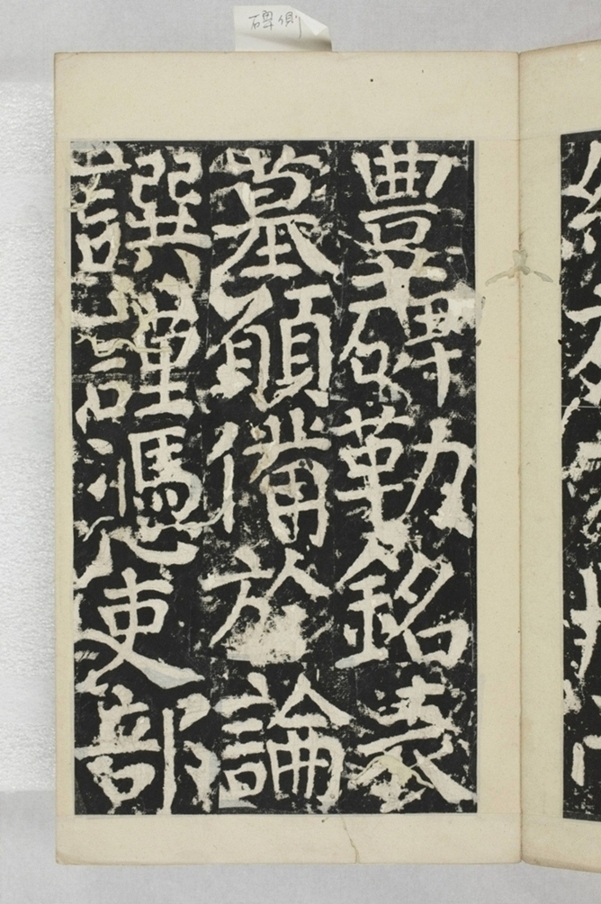 碑側
豐碑勒銘表
墓願備於論
譔謹憑吏部